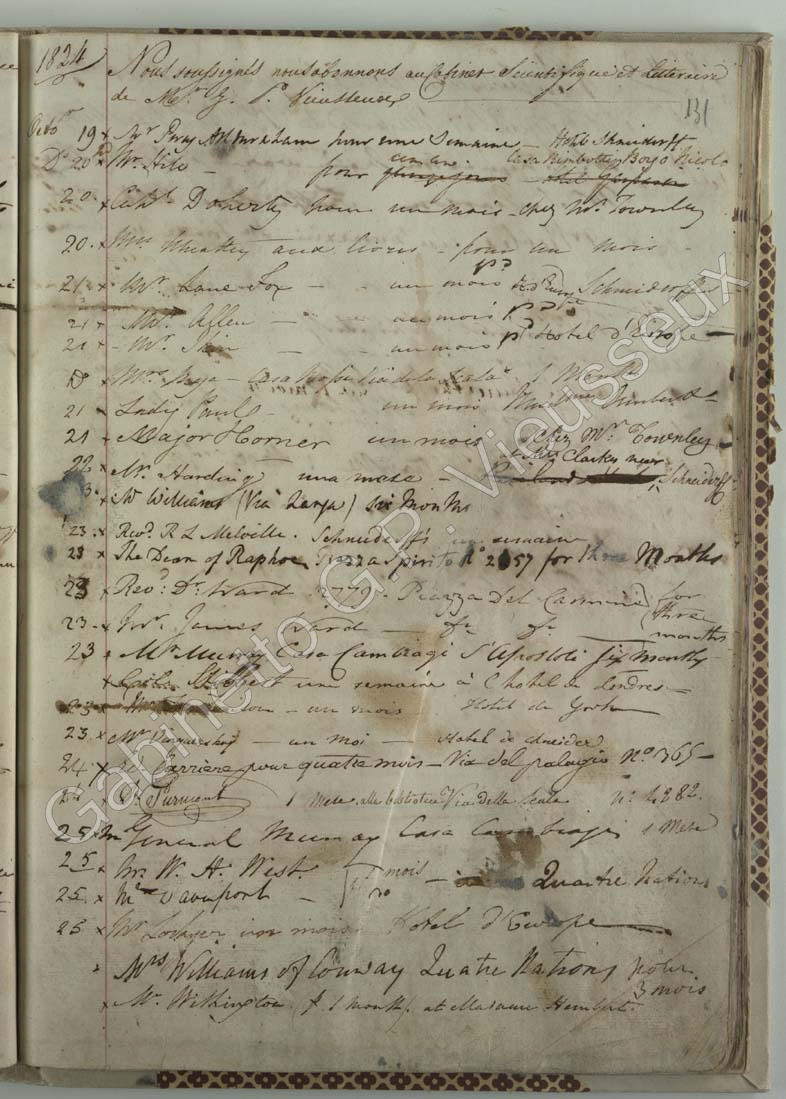 1824
Nous soussignés nous abonnons au Cabinet Scientifique et Litteraire
de Mr. G. P. Vieusseux
131
Octo 19 x Mr Abraham pour une Semaine - Hotel Schneidorff
Do 20 x Mr. Hilo - pour un an. Casa Borgo
20 x Capt. Doherty pour un mois - chez Mr. Townley
20. x aux livres - pour un mois -
21 x Mr. Lane Fox - un mois pd Schneidorff
21 x Allen - un mois pd
21 - Mr. - un mois pd Hotel d'Europe
Do x Mrs - Casa Via de la Scala 1 Month
21 x Lady Paul - un mois Madame Humbert
21 x Major Horner un mois chez Mr. Townley
22 x Mr. Harding una mese - Mrs Clarkes near Schneidorff
3. x Mr Williams (Via Larga) six Months
23. x Revd. R L Melville. Schneiderff's un semaine
23 x The Dean of Raphoe Piazza S. Spirito No 2057 for three Months
23 x Revd: Dr. Ward 2770. Piazza Del Carmine for three months
23. x Mr. James Ward - do do
23 x Mr. Murray Casa Cambiagi S. Apostoli six months
x une semaine à l'hotel de Londres -
23 x - un mois Hotel de York
23 x Mr - un moi - Hotel de Sneider
24 x Carriere pour quatre mois - Via del palagio No. 365 -
24 x 1 Mese, alla biblioteca Via della Scala No. 4282.
25 x General Murray Casa Cambiagi 1 Mese
25 x Mr. W. H. West. 1 mois - Quatre Nations
25 x Mr Davenport - do
25 x Mr un mois Hotel d'Europe
x Mrs Williams of Conway Quatre Nations pour 3 mois
x Mr. Withington f. 1 month. at Madame Humbert.
Gabinetto G.P. Vieusseux